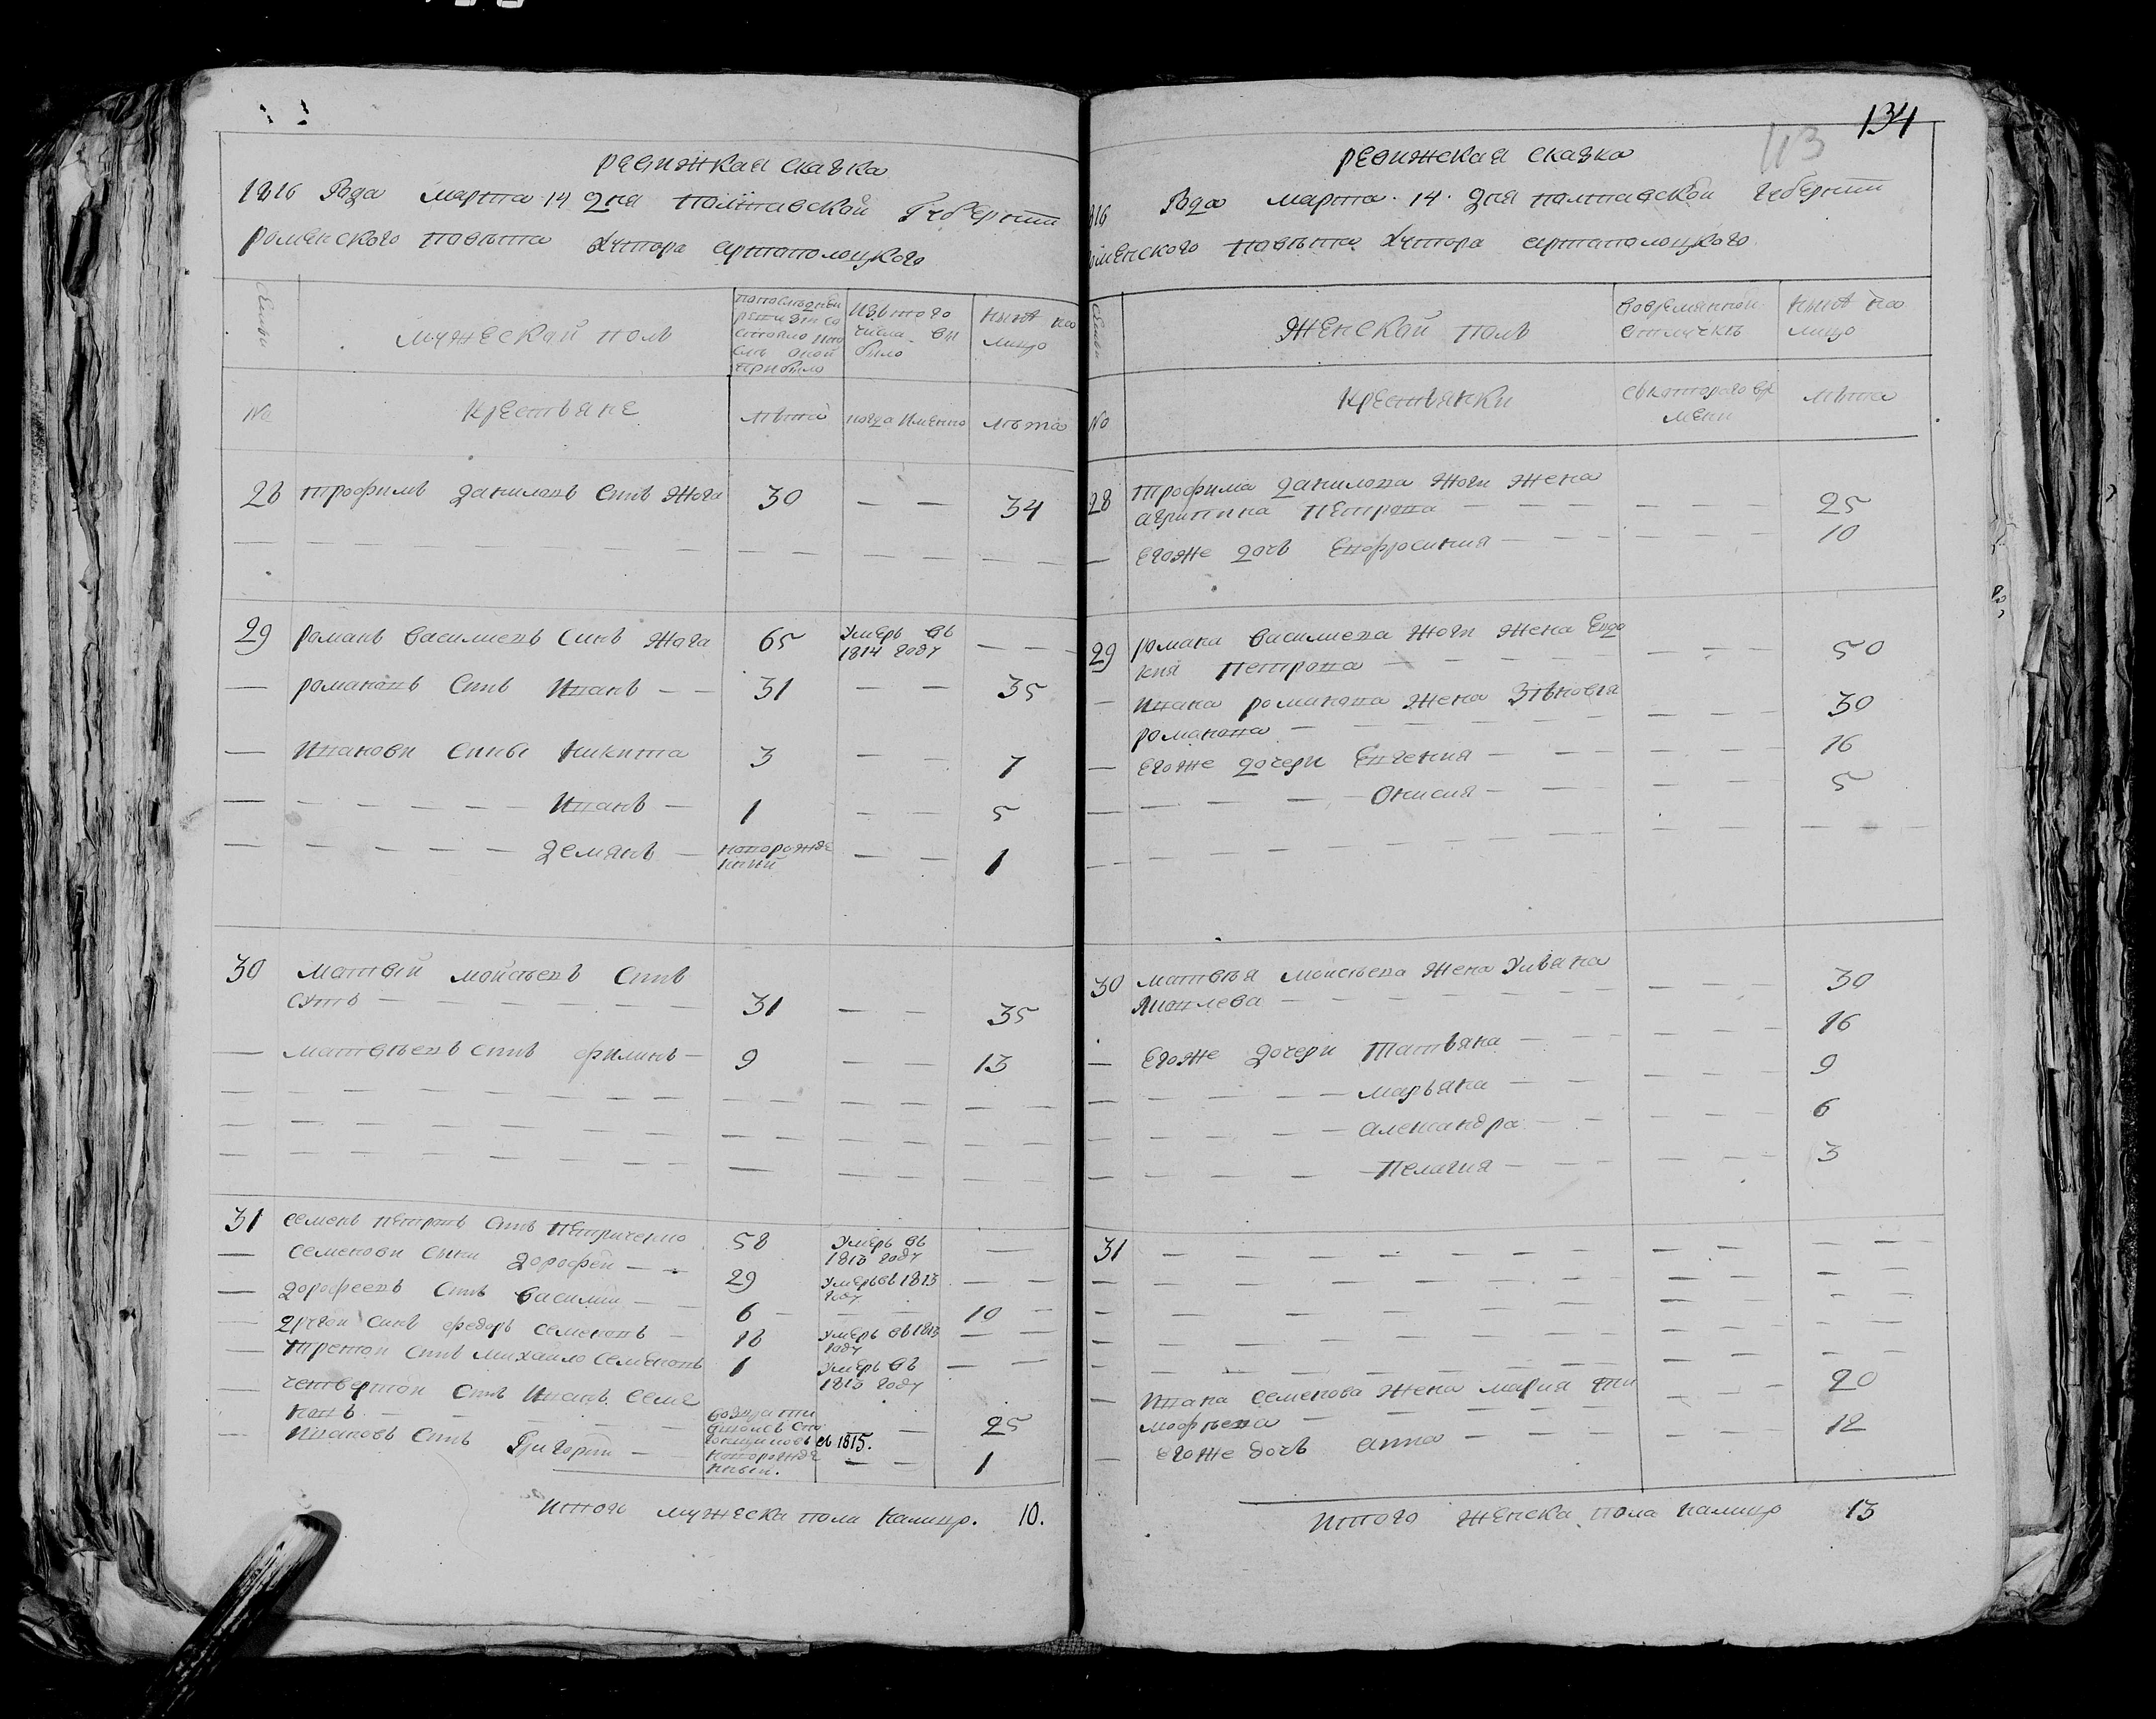 ревижкая сказка
1816 года марта 14 дня полтавской губернии
роменского повѣта хутора артаполоцкого
семьи
мужескай полъ
попослѣдней
ревизии со
стояло ипо
слѣ оной
прибыло
Изъ того
числа вы
было
нынѣ на
лицо
No
крестьяне
лѣта
когда Именно
лѣта
28 трофимъ даниловъ Синъ Жога 30 — — 34
29 романъ василиевъ Синъ Жога 65 умеръ въ
1814 году — — —
— романовъ Синъ Иванъ — — 31 — — 35
— Иванови Сины Никита 3 — — 7
— — — — — — Иванъ — 1 — — 5
— — — — — — демянъ — новорожде
нний — — 1
30 матвій мойсѣевъ Синъ
Сутъ — — — — — 31 — — 35
— матвѣевъ Синъ филипъ — 9 — — 13
31 семенъ петровъ Синъ петриченко 58 умеръ въ
1813 году —
— семенови сыни дорофей — — 29 умеръ въ 1813
году — —
— дорофеевъ Синъ василий — — 6 — — — 10 —
— другои Синъ федоръ семеновъ — 18 умеръ въ 1813
году — —
— третои Синъ михайло семеновъ 1 умеръ въ
1813 году — —
— четвертои Синъ Иванъ семе
новъ — — — — — въ 1815. — 25
— Ивановъ Синъ Григорий — новорожде
нный. — — 1
Итого мужеска пола налицо. 10.
134
113
ревижская сказка
816 года марта. 14. дня полтавской губернии
оменского повѣта хутора артаполоцкого
семьи
Женскай полъ
вовремянной
отлучкѣ
нынѣ на
лицо
No
крестьянки
съкоторого вре
мени
лѣта
28 трофима данилова Жоги Жена
агрипина петрова — — — — 25
— егоже дочь Ефросиния — — — — 10
29 романа василиева Жоги Жена Евдо
кия петрова — — — — 50
— Ивана романова Жена Зѣновія
романова — — — — 30
— егоже дочери Евгения — — — — 16
— — — — — Онисия — — — — 5
30 матвѣя моисѣева Жена Уляна
Яковлева — — — — 30
— егоже дочери Татьяна — — — — 16
— — — — — марьяна — — — — 9
— — — — — александра — — — — 6
— — — — — Пелагия — — — — 3
31 — — — — — — — —
— Ивана семенова Жена мария тим
мофѣева — — — — 20
— егоже дочь анна — — — — 12
Итого Женска пола налицо 13